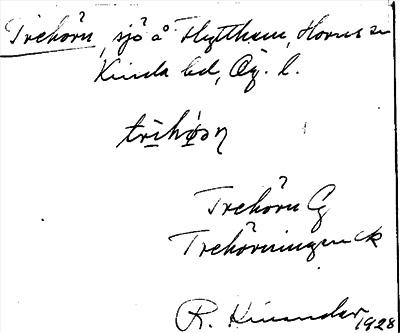 Trehörn, sjö å Flytthem, Horns sn
Kinda hd, Ög. l.
trihøn
Trehörn Cg
Trehörningen ck
R. Kinander 1928